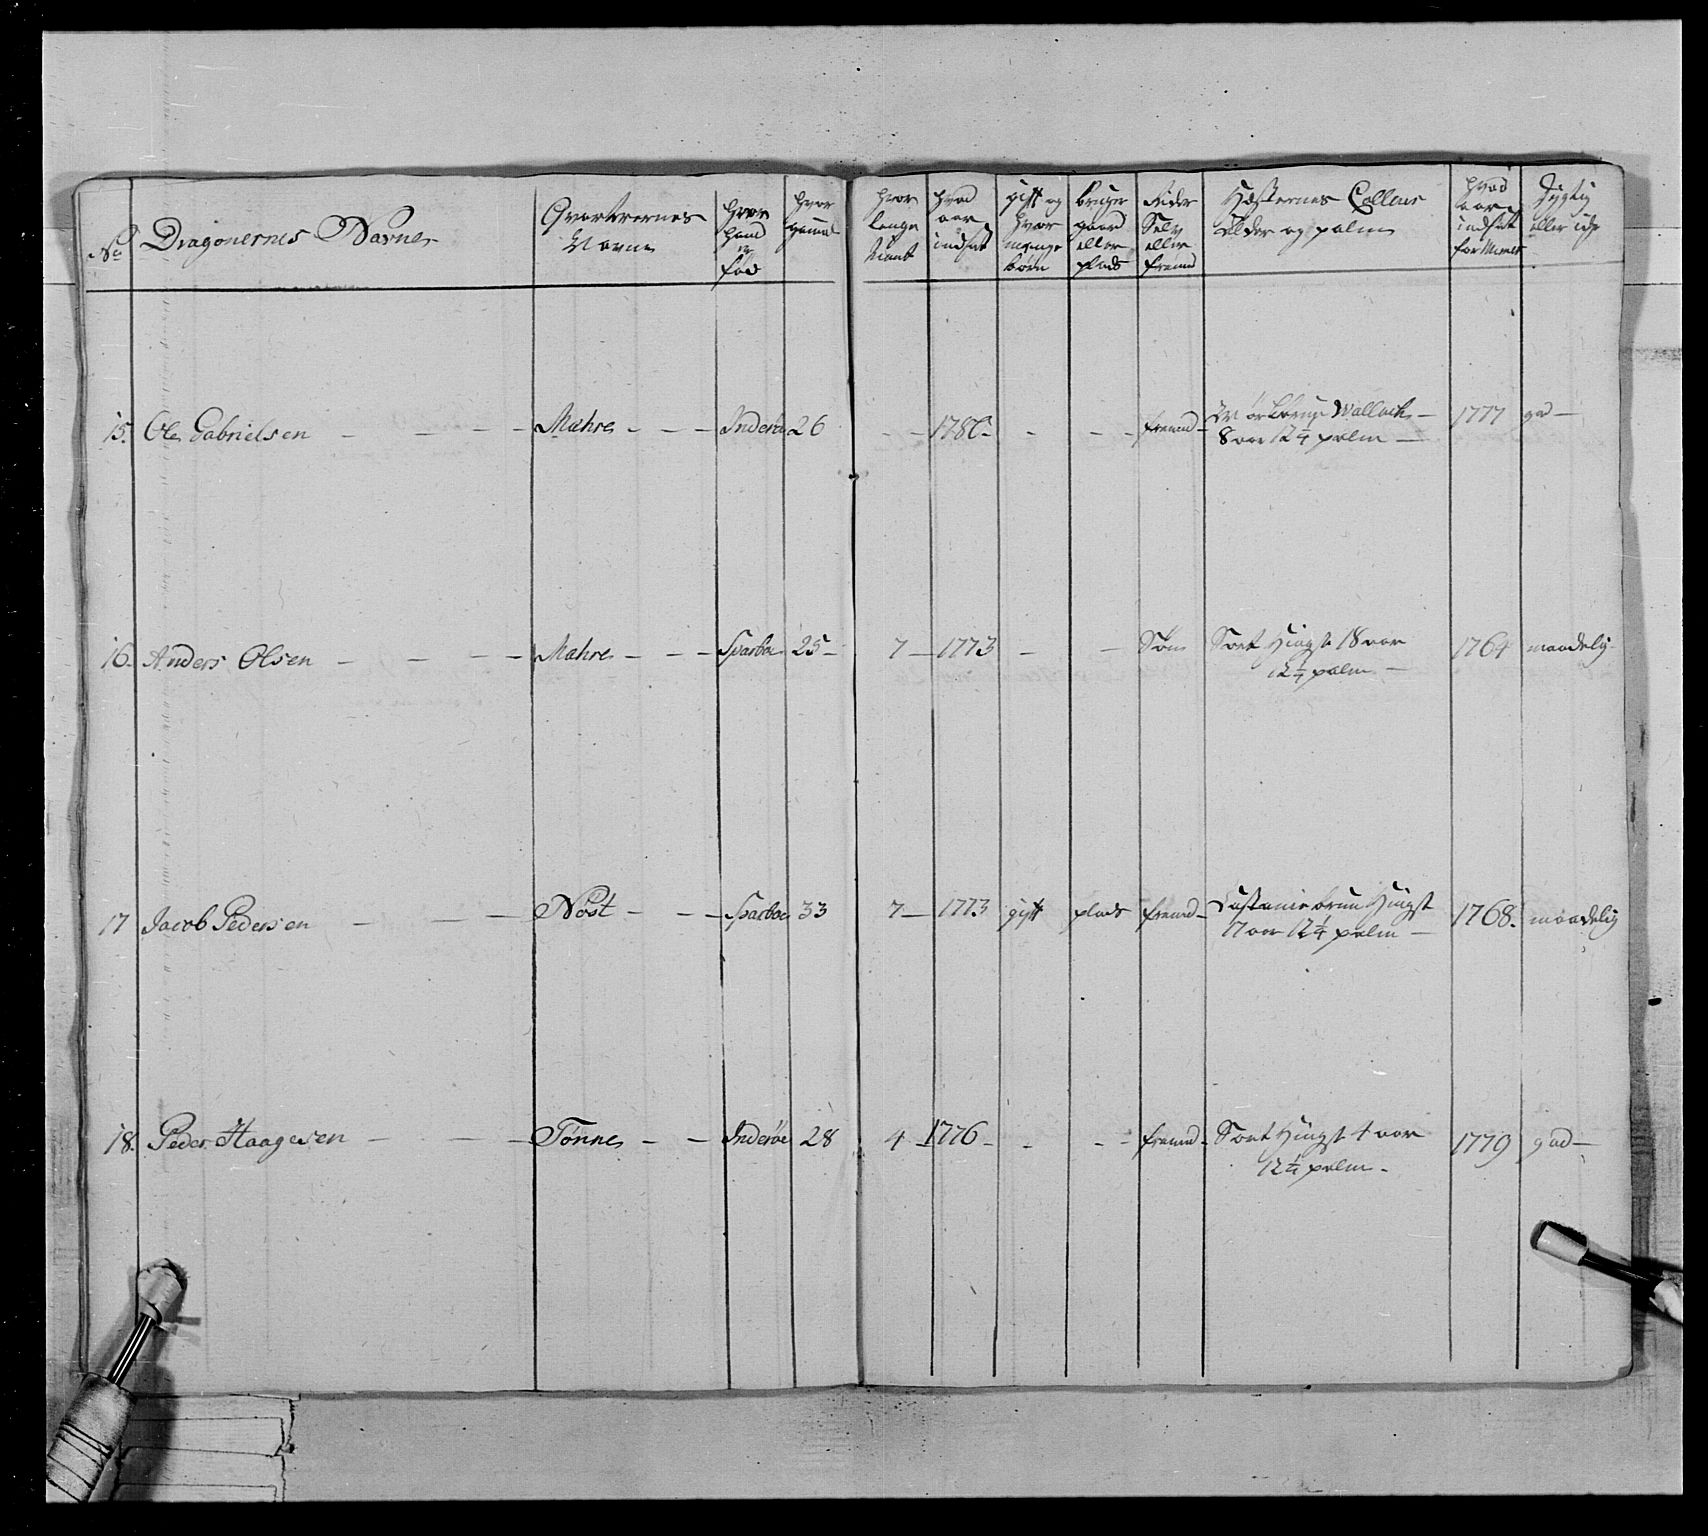 No Dragonernes Navne Qvarterernes Navne hvor hand er fød hvor gammel hvor lenge tient hvad aar indsat gift og hvor mange børn bruger gaard eller plads Rider Selv eller fremd Hæsternes Colleur Alder og palm hvad aar indsat for Numer Dygtig eller icke
15. Ole Gabrielsen - - - - Mæhre - - - Inderøe 26 - - 1780 - - - - fremd - Wallack -
8 aar 12 1/4 palm - 1777 god -
16. Anders Olsen - - - - Mæhre - - - Sparboe 25 - 7 - 1773 - - Søn Sort Hingst 18 aar
12 1/4 palm - 1764 maadelig
17 Jacob Pedersen - - - - Nøst - - - Sparboe 33 7 - 1773 gift plads fremd - Castaniebrun Hingst
17 aar 12 1/4 palm - 1768. maadelig
18. Peder Haagesen - - - - Tønne - - Inderøe 28 4 - 1776 - - - - fremd - Sort Hingst 4 aar
12 1/4 palm - 1779 god -